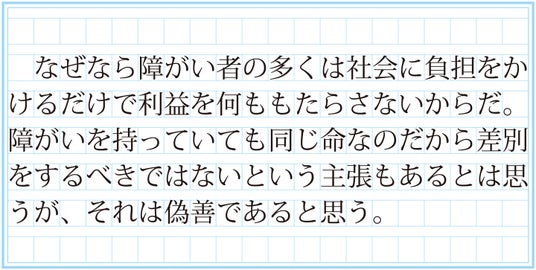 なぜなら障がい者の多くは社会に負担をか
けるだけで利益を何ももたらさないからだ。
障がいを持っていても同じ命なのだから差別
をするべきではないという主張もあるとは思
うが、それは偽善であると思う。